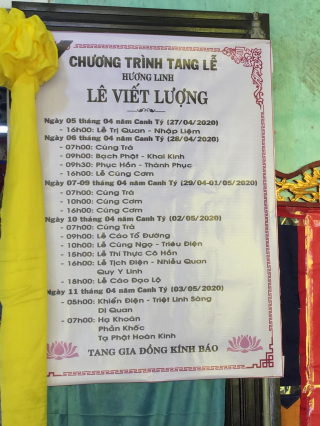 CHƯƠNG TRÌNH TANG LỄ
HƯƠNG LINH
LÊ VIẾT LƯỢNG
Ngày 05 tháng 04 năm Canh Tý (27/04/2020)
- 16h00: Lễ Trị Quan - Nhập Liệm
Ngày 06 tháng 04 năm Canh Tý (28/04/2020)
- 07h00: Cúng Trà
- 09h00: Bạch Phật - Khai Kinh
- 09h30: Phục Hồn - Thành Phục
- 16h00: Lễ Cúng Cơm
Ngày 07-09 tháng 04 năm Canh Tý (29/04-01/05/2020)
- 07h00: Cúng Trà
- 10h00: Cúng Cơm
- 16h00: Cúng Cơm
Ngày 10 tháng 04 năm Canh Tý (02/05/2020)
- 07h00: Cúng Trà
- 09h00: Lễ Cáo Tổ Đường
- 10h00: Lễ Cúng Ngọ - Triêu Điện
- 15h00: Lễ Thí Thực Cô Hồn
- 16h00: Lễ Tịch Điện - Nhiễu Quan
Quy Y Linh
- 18h00: Lễ Cáo Đạo Lộ
Ngày 11 tháng 04 năm Canh Tý (03/05/2020)
- 05h00: Khiển Điện - Triệt Linh Sàng
Di Quan
- 07h00: Hạ Khoán
Phản Khốc
Tạ Phật Hoàn Kinh
TANG GIA ĐỒNG KÍNH BÁO